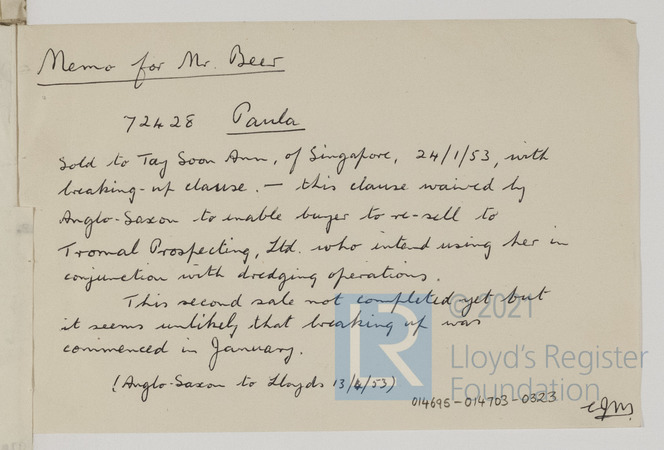 Memo for Mr. Beer
72428 Paula
Sold to Tay Soon Ann, of Singapore, 24/1/53, with
breaking-up clause. — this clause waived by
Anglo-Saxon to enable buyer to re-sell to
Tromal Prospecting, Ltd. who intend using her in
conjunction with dredging operations.
This second sale not completed yet but
it seems unlikely that breaking up was
commenced in January.
(Anglo-Saxon to Lloyds 13/4/53)
© 2021
Lloyd's Register
Foundation
014695-014703-0323